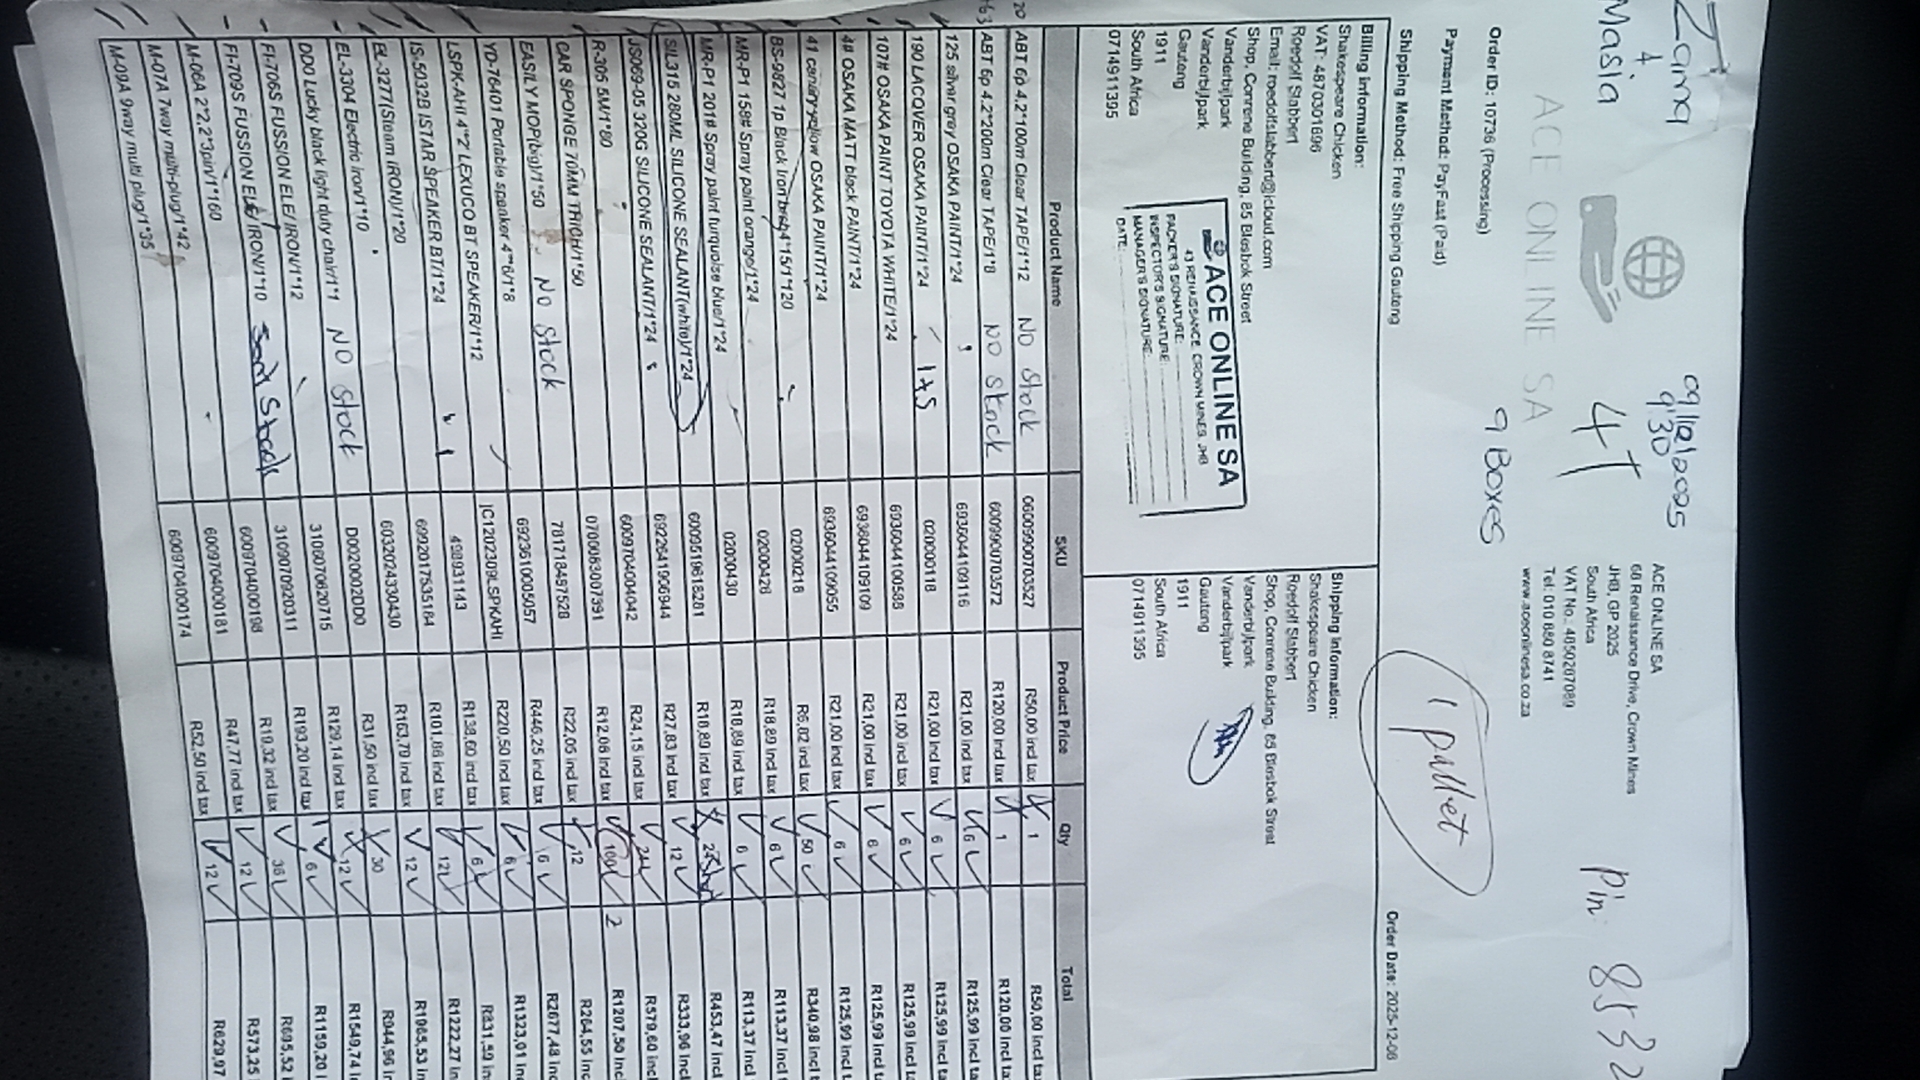 Zama & Masia
09/12/2025
9:30
4T
Pin: 8532
ACE ONLINE SA
9 Boxes
1 pallet
ACE ONLINE SA
68 Renaissance Drive, Crown Mines
JHB, GP 2025
South Africa
VAT No.: 4850267089
Tel: 010 880 8741
www.aceonlinesa.co.za
Order ID: 10736 (Processing)
Payment Method: PayFast (Paid)
Shipping Method: Free Shipping Gauteng
Order Date: 2025-12-06
Billing Information:
Shakespeare Chicken
VAT: 4870301896
Roedolf Slabbert
Email: roedolfslabbert@icloud.com
Shop, Conrene Building, 85 Blesbok Street
Vanderbijlpark
Vanderbijlpark
Gauteng
1911
South Africa
0714911395
ACE ONLINE SA
43 RENAISSANCE, CROWN MINES, JHB
PACKER'S SIGNATURE:
INSPECTOR'S SIGNATURE:
MANAGER'S SIGNATURE:
DATE:
Shipping Information:
Shakespeare Chicken
Roedolf Slabbert
Shop, Conrene Building, 85 Blesbok Street
Vanderbijlpark
Vanderbijlpark
Gauteng
1911
South Africa
0714911395
Product Name SKU Product Price Qty Total
ABT 6p 4.2*100m Clear TAPE/1*12 No Stock 0600990703527 R50,00 incl tax 1 R50,00 incl
ABT 6p 4.2*200m Clear TAPE/1*8 No Stock 6009900703572 R120,00 incl tax 1 R120,00 incl
125 silver grey OSAKA PAINT/1*24 6936044109116 R21,00 incl tax 6 R125,99 incl
190 LACQVER OSAKA PAINT/1*24 1+5 020000118 R21,00 incl tax 6 R125,99 incl
107# OSAKA PAINT TOYOTA WHITE/1*24 6936044100588 R21,00 incl tax 6 R125,99 incl
4# OSAKA MATT black PAINT/1*24 6936044109109 R21,00 incl tax 6 R125,99 incl
41 canaryyellow OSAKA PAINT/1*24 6936044109055 R21,00 incl tax 6 R125,99 incl
BS-9827 1p Black Iron brush 4*15/1*120 02000218 R6,82 incl tax 50 R340,98 incl
MR-P1 158# Spray paint orange/1*24 02000426 R18,89 incl tax 6 R113,37 incl
MR-P1 201# Spray paint turquoise blue/1*24 02000430 R18,89 incl tax 6 R113,37 incl
SIL315 280ML SILICONE SEALANT(white)/1*24 6009519618281 R18,89 incl tax 24 R453,47 incl
JS069-05 320G SILICONE SEALANT/1*24 6922641906944 R27,83 incl tax 12 R333,96 incl
R-305 5M/1*80 6009704004042 R24,15 incl tax 24 R579,60 incl
CAR SPONGE 70MM THICH/1*50 0700083007391 R12,08 incl tax 100 2 R1207,50 incl
EASILY MOP(big)/1*50 No Stock 7817184597528 R22,05 incl tax 12 R264,55 incl
YD-76401 Portable speaker 4"*6/1*8 6923610005057 R446,25 incl tax 6 R2677,48 incl
LSPK-AHI 4*"2' LEXUCO BT SPEAKER/1*12 JC1202309LSPKAHI R220,50 incl tax 6 R1323,01 incl
IS-5032B ISTAR SPEAKER BT/1*24 498931143 R138,60 incl tax 6 R831,59 in
EL-3277(Steam IRON)/1*20 6992017535184 R101,86 incl tax 12 R1222,27 in
EL-3304 Electric iron/1*10 6032024330430 R163,79 incl tax 12 R1965,53 in
DD0 Lucky black light duty chair/1*1 No Stock D002000DD0 R31,50 incl tax 30 R944,96 in
FI-706S FUSSION ELE/IRON/1*12 3108007062 0715 R129,14 incl tax 12 R1549,74 i
FI-709S FUSSION ELE/ IRON/1*10 3109070920311 R193,20 incl tax 6 R1159,20 i
M-06A 2*2,2*3pin/1*160 6009704000198 R19,32 incl tax 36 R695,52 i
M-07A 7way multi-plug/1*42 6009704000181 R47,77 incl tax 12 R573,25
M-09A 9way multi plug/1*35 6009704000174 R52,50 incl tax 12 R629,97